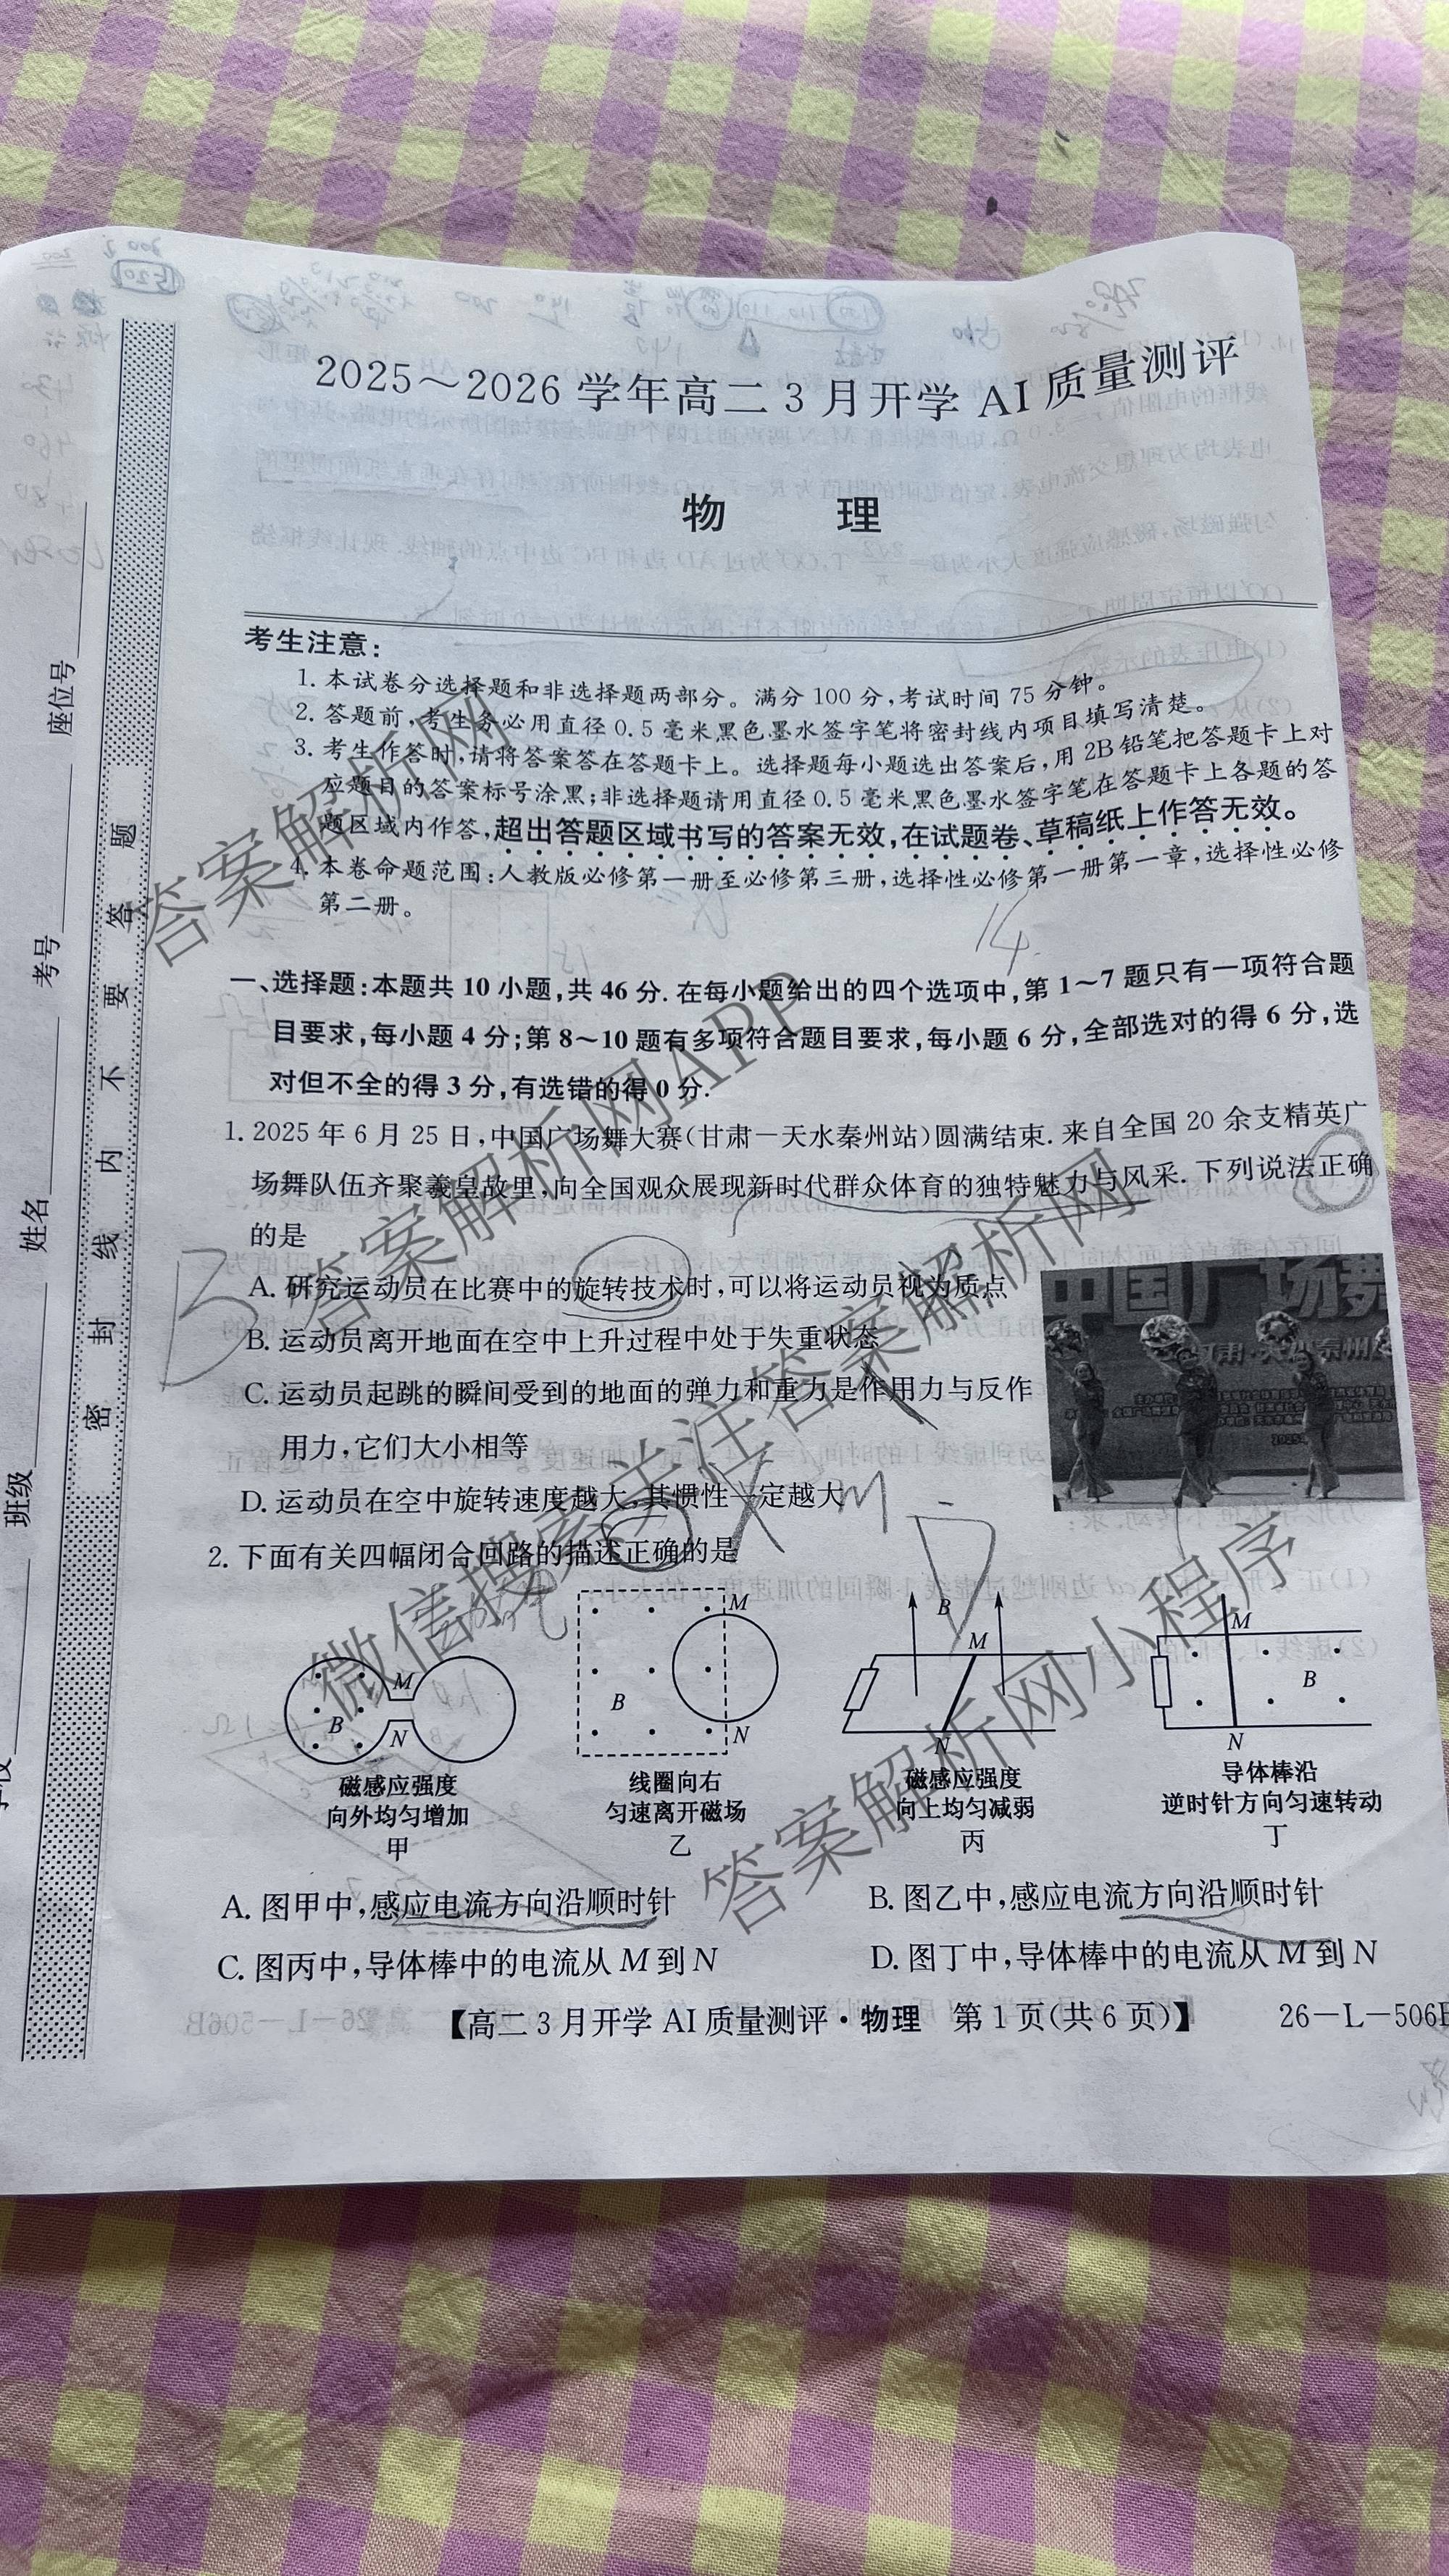 2025～2026学年高二3月开学AI质量测评
物 理
考生注意:
1. 本试卷分选择题和非选择题两部分。满分100分,考试时间75分钟。
2. 答题前,考生务必用直径0.5毫米黑色墨水签字笔将密封线内项目填写清楚。
3. 考生作答时,请将答案答在答题卡上。选择题每小题选出答案后,用2B铅笔把答题卡上对
应题目的答案标号涂黑;非选择题请用直径0.5毫米黑色墨水签字笔在答题卡上各题的答
题区域内作答,超出答题区域书写的答案无效,在试题卷、草稿纸上作答无效。
4. 本卷命题范围:人教版必修第一册至必修第三册,选择性必修第一册第一章,选择性必修
第二册。
14
一、选择题:本题共10小题,共46分. 在每小题给出的四个选项中,第1～7题只有一项符合题
目要求,每小题4分;第8～10题有多项符合题目要求,每小题6分,全部选对的得6分,选
对但不全的得3分,有选错的得0分.
1. 2025年6月25日,中国广场舞大赛(甘肃—天水秦州站)圆满结束. 来自全国20余支精英广
场舞队伍齐聚羲皇故里,向全国观众展现新时代群众体育的独特魅力与风采. 下列说法正确
的是
B
A. 研究运动员在比赛中的旋转技术时,可以将运动员视为质点
B. 运动员离开地面在空中上升过程中处于失重状态
C. 运动员起跳的瞬间受到的地面的弹力和重力是作用力与反作
用力,它们大小相等
D. 运动员在空中旋转速度越大,其惯性一定越大
中国广场舞
m
D
2. 下面有关四幅闭合回路的描述正确的是
M
B
N
磁感应强度
向外均匀增加
甲
M
B
N
线圈向右
匀速离开磁场
乙
B
M
N
磁感应强度
向上均匀减弱
丙
M
B
N
导体棒沿
逆时针方向匀速转动
丁
A. 图甲中,感应电流方向沿顺时针
B. 图乙中,感应电流方向沿顺时针
C. 图丙中,导体棒中的电流从M到N
D. 图丁中,导体棒中的电流从M到N
【高二3月开学AI质量测评·物理 第1页(共6页)】
26-L-506B
座位号
考号
姓名
班级
密 封 线 内 不 要 答 题
答案解析网
答案解析网APP
微信搜索关注答案解析网
答案解析网小程序